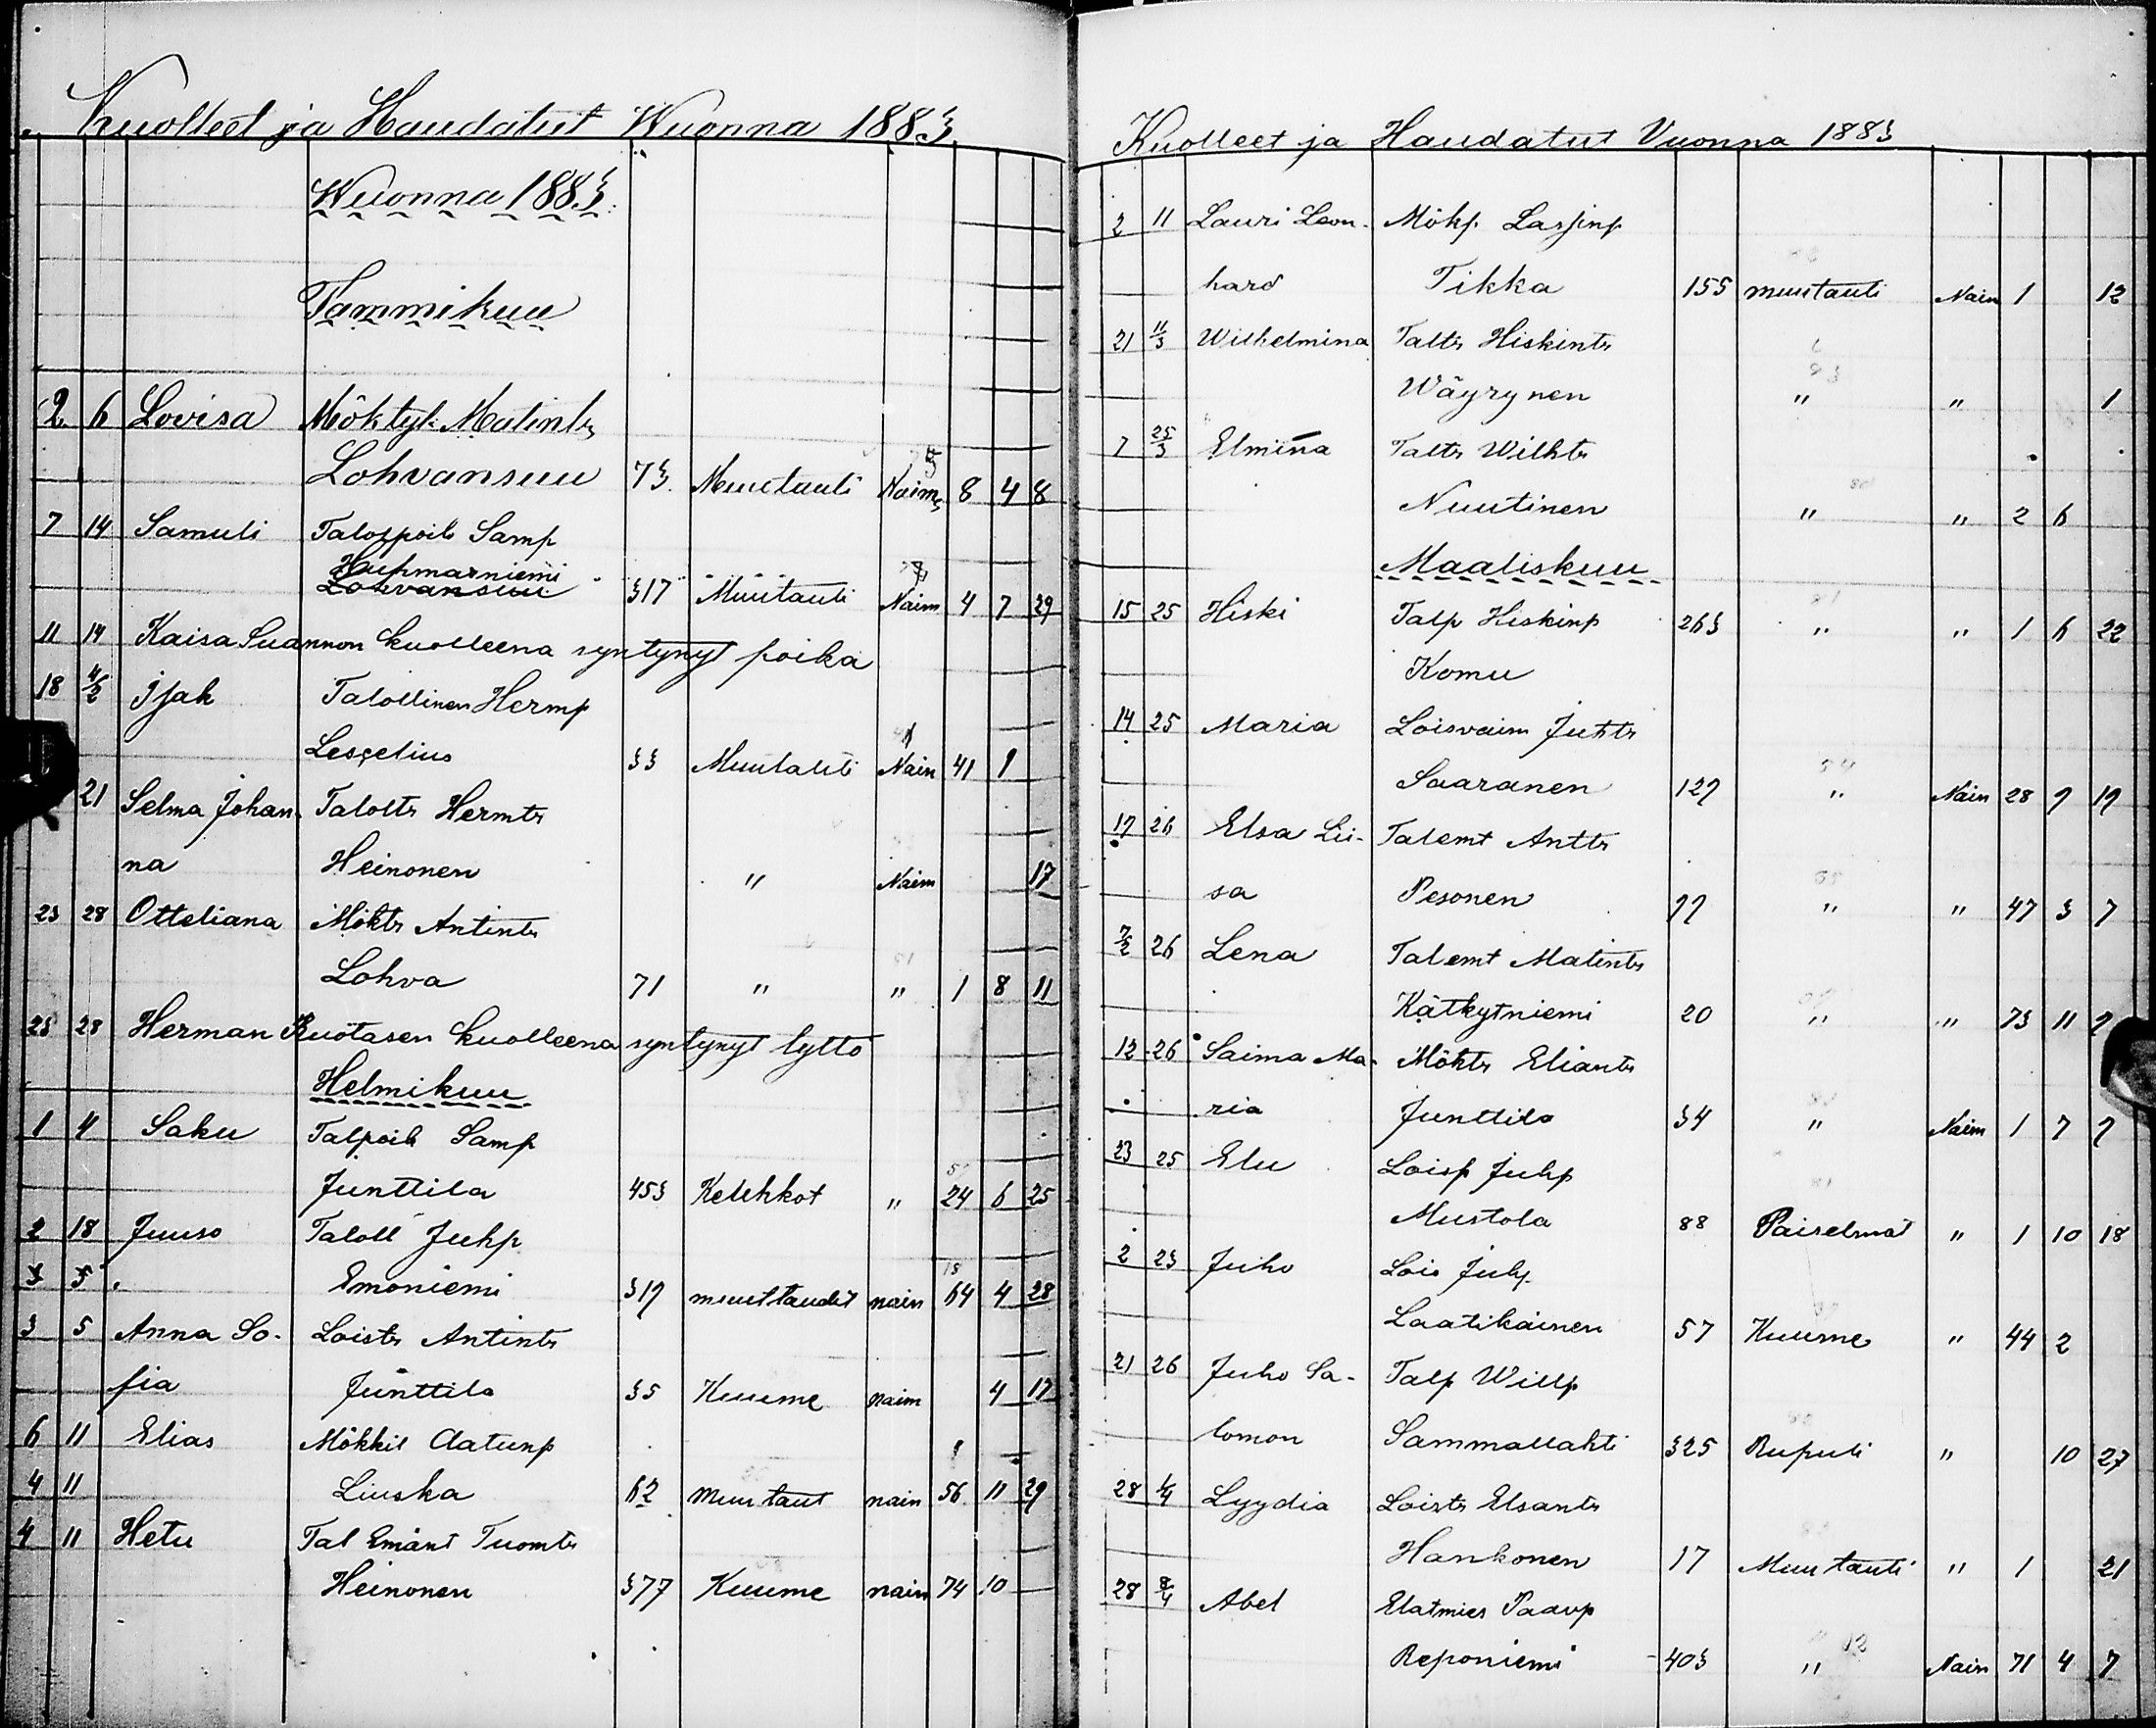 Kuolleet ja Haudatut Wuonna 1883.
Wuonna 1883.
Tammikuu
2 6 Lovisa Möktyt. Matints
Lohvansuu 73. Muutauti Naim 8 4 8
7 14 Samuli Talospoik Samp
Huhmarniemi
Lohvansuu 317 Muutauti Naim 4 7 29
11 14 Kaisa Suannon kuolleena syntynyt poika
18 4/2 Isak Talollinen Hermp
Lesçelius 33 Muutauti Nain 41 1
21 Selma Johan- Talolts Hermts
na Heinonen " Naim 17
23 28 Otteliana Mökts Antints
Lohva 71 " " 1 8 11
23 28 Herman Ruotasen kuolleena syntynyt tyttö
Helmikuu
1 4 Saku Talpoik Samp
Junttila 453 Keuhkot " 24 6 25
2 18 Juuso Taloll Juhp
3 5 Emoniemi 319 muuttaudit nain 64 4 28
3 5 Anna So- Loists Antints
fia Junttila 35 Kuume naim 4 17
6 11 Elias Mökkil Aatunp
4 11 Liuska 62 muutaut nain 56 11 29
4 11 Hetu Tal Emänt Tuomts
Heinonen 377 Kuume nain 74 10
Kuolleet ja Haudatut Vuonna 1883
2 11 Lauri Leon- Mökp. Lassinp
hard Tikka 155 muutauti Naim 1 12
21 11/3 Wilhelmina Talts Hiskints
Wäyrynen " " 1
7 25/3 Elmina Talts Wilhts
Nuutinen " " 2 6
Maaliskuu
15 25 Hiski Talp Hiskinp 263 " " 1 6 22
Komu
14 25 Maria Loisvaim Juhts
Saaranen 129 " Nain 28 9 19
17 26 Elsa Lii- Talemt Antts
sa Pesonen 99 " " 47 3 7
7/2 26 Lena Talemt Matints
Kätkytniemi 20 " " 73 11 2
12 26 Saima Ma- Mökts Eliants
ria Junttila 34 " Naim 1 7 7
23 25 Elu Loisp Juhp
Mustola 88 Paiselmat " 1 10 18
2 23 Juho Lois Juhp
Laatikainen 57 Kuume " 44 2
21 26 Juho Sa- Talp Willp
lomon Sammallahti 325 Rupuli " 10 27
28 1/4 Lyydia Loists Elsants
Hankonen 17 Muutauti " 1 21
28 8/4 Abel Elatmies Paavp
Reponiemi 403 " Nain 71 4 7